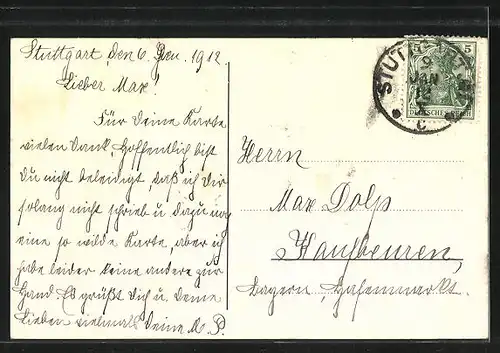 Stuttgart den 6. Jan. 1912
Lieber Max!
Für Deine Karte
vielen Dank. Hoffentlich bist
Du nicht beleidigt, daß ich Dir
solang nicht schrieb u. dazu nur
eine so wilde Karte, aber ich
habe leider keine andere zur
Hand. Es grüßt Dich u. Deine
Lieben vielmals Deine M. P.
STUTTGART
9
JAN
12
X
c
5
DEUTSCHES REICH
Herrn
Max Dolp
Kaufbeuren,
Bayern, Hafenmarkt.